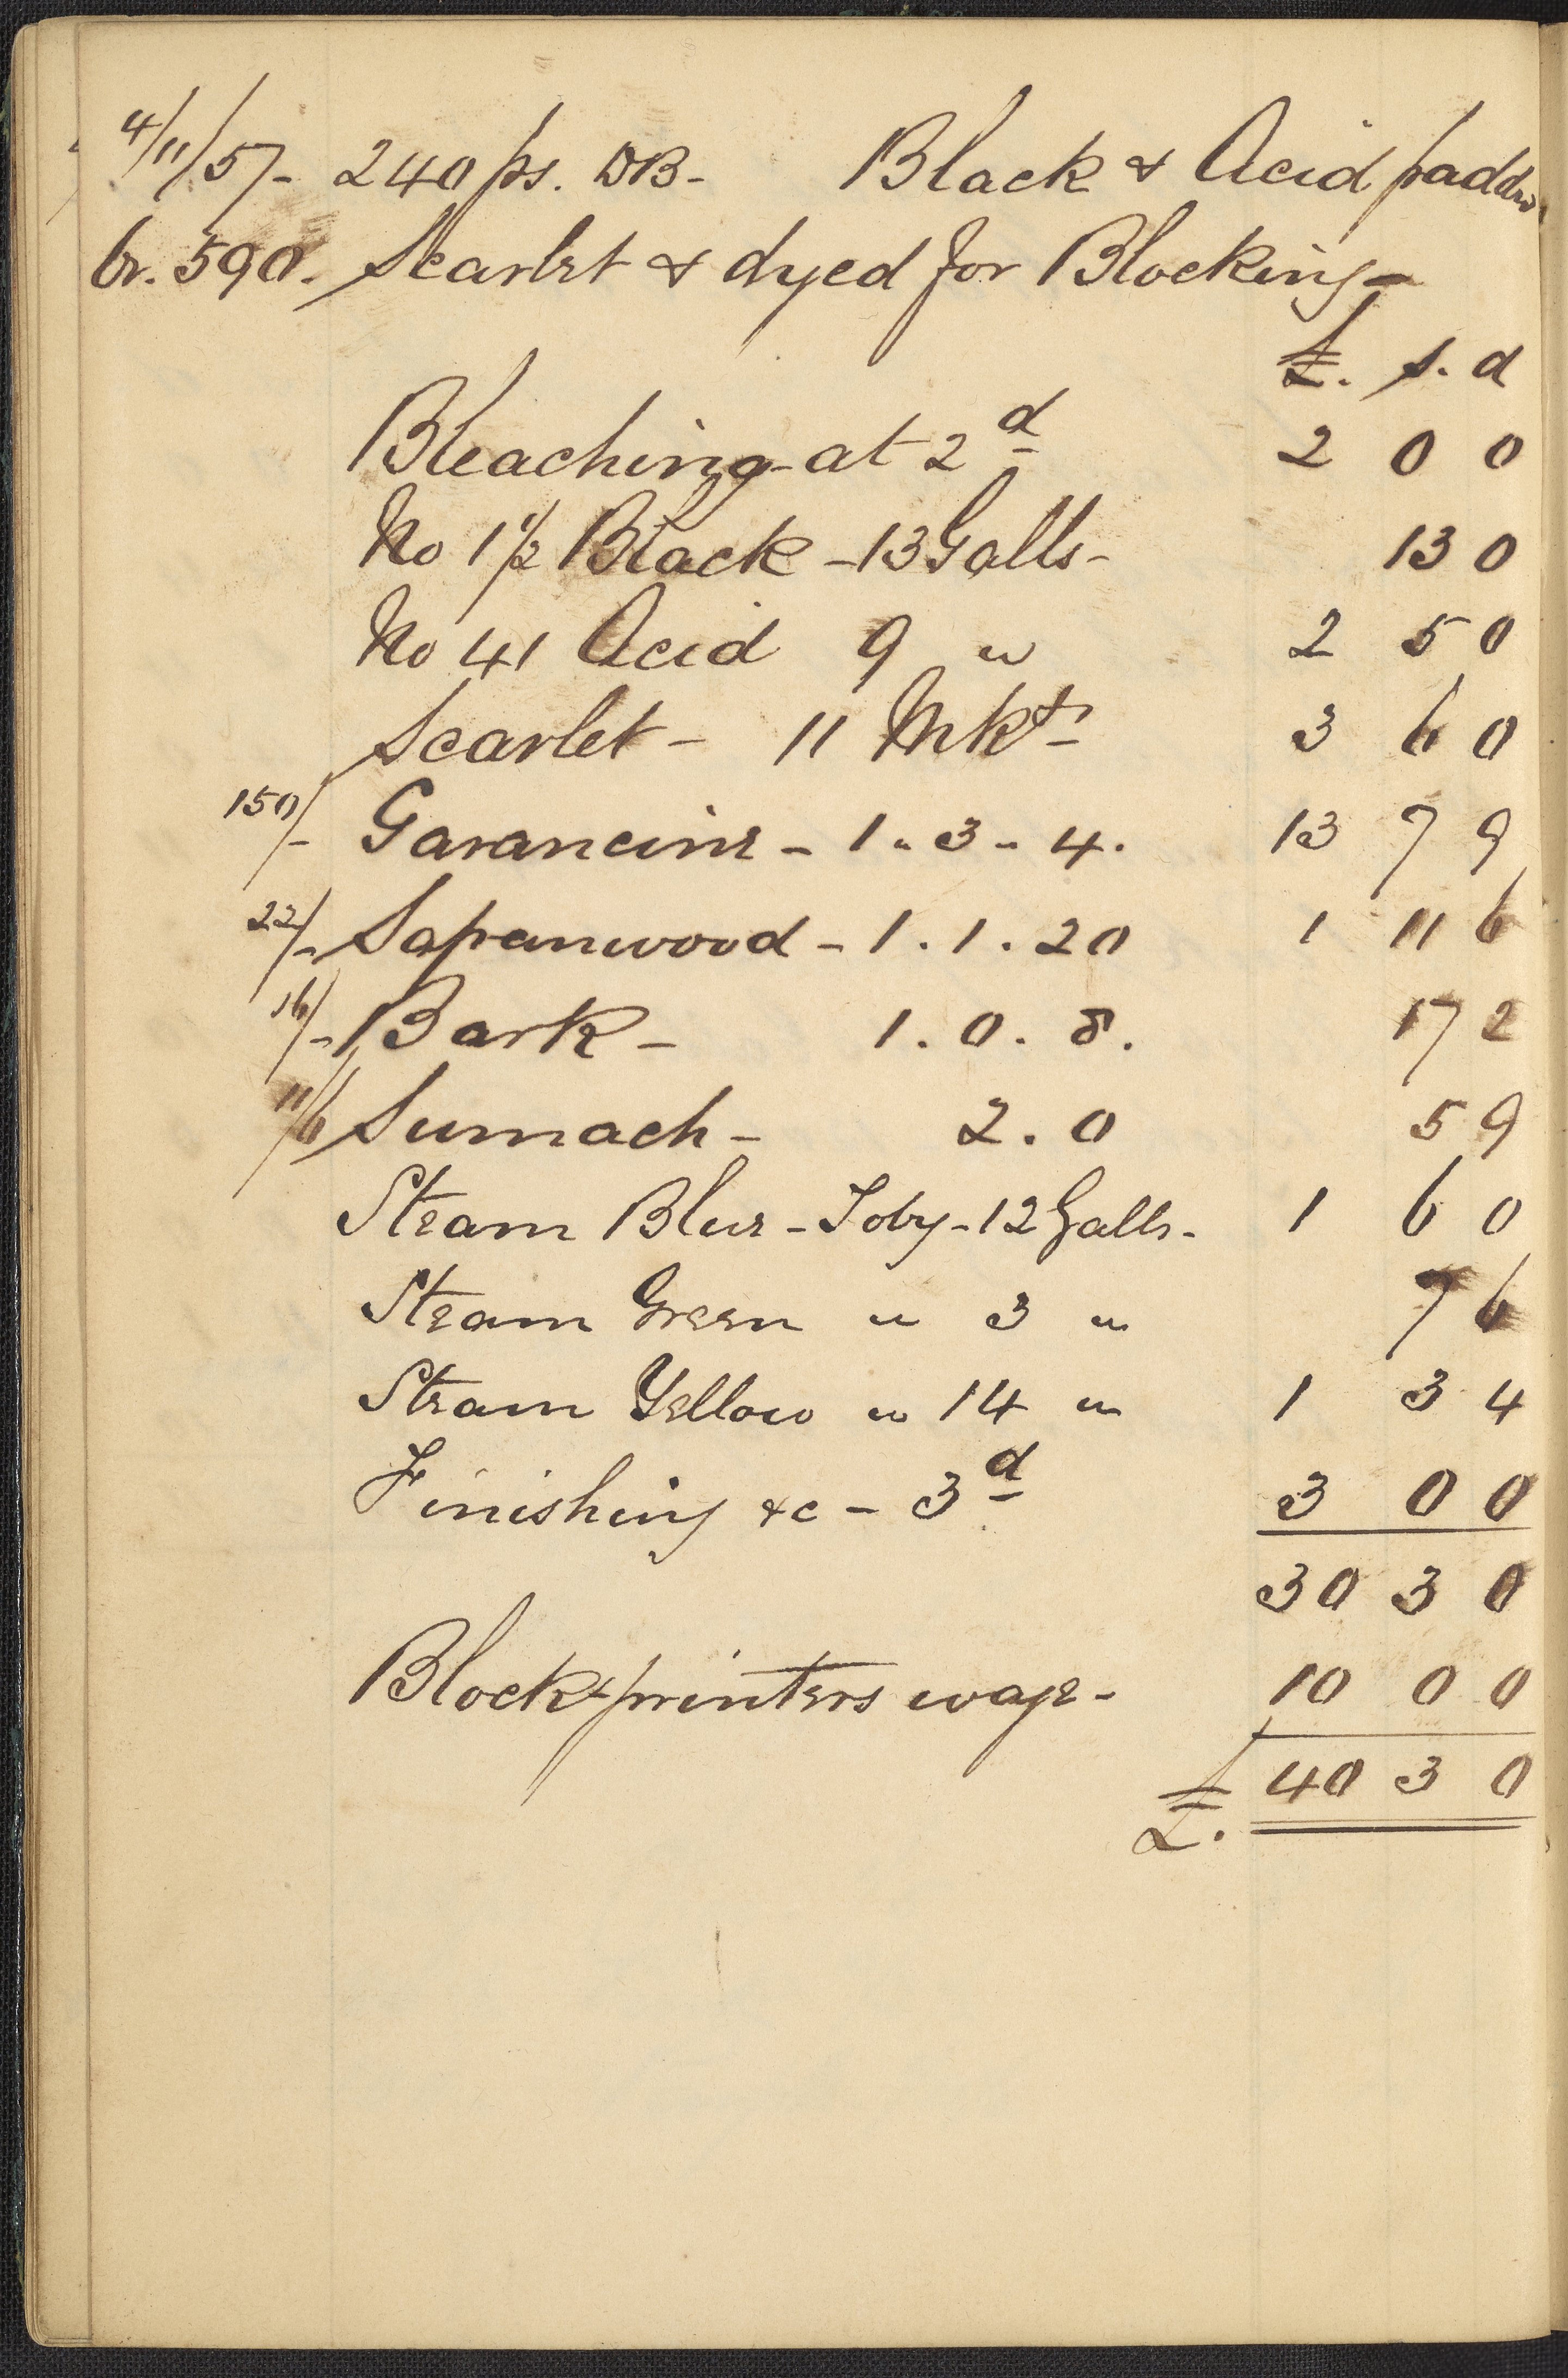 4/11/57- 240 ps. DB- Black & Acid padded
br. 590. Scarlet & dyed for Blocking-
£. s. d
Bleaching-at 2d 2 0 0
No 1 1/2 Black -13 Galls- 13 0
No 41 Acid 9 " 2 5 0
Scarlet- 11 Mkts 3 6 0
150/- Garancine - 1 " 3 - 4. 13 7 9
22/- Sapanwood - 1 . 1 . 20 1 11 6
16/- Bark - 1 . 0 . 8 . 17 2
11/6 Sumach - 2 . 0 5 9
Steam Blue - Toby - 12 Galls - 1 6 0
Steam Green " 3 " 7 6
Steam Yellow " 14 " 1 3 4
Finishing &c - 3d 3 0 0
30 3 0
Block printers wage - 10 0 0
£. 40 3 0